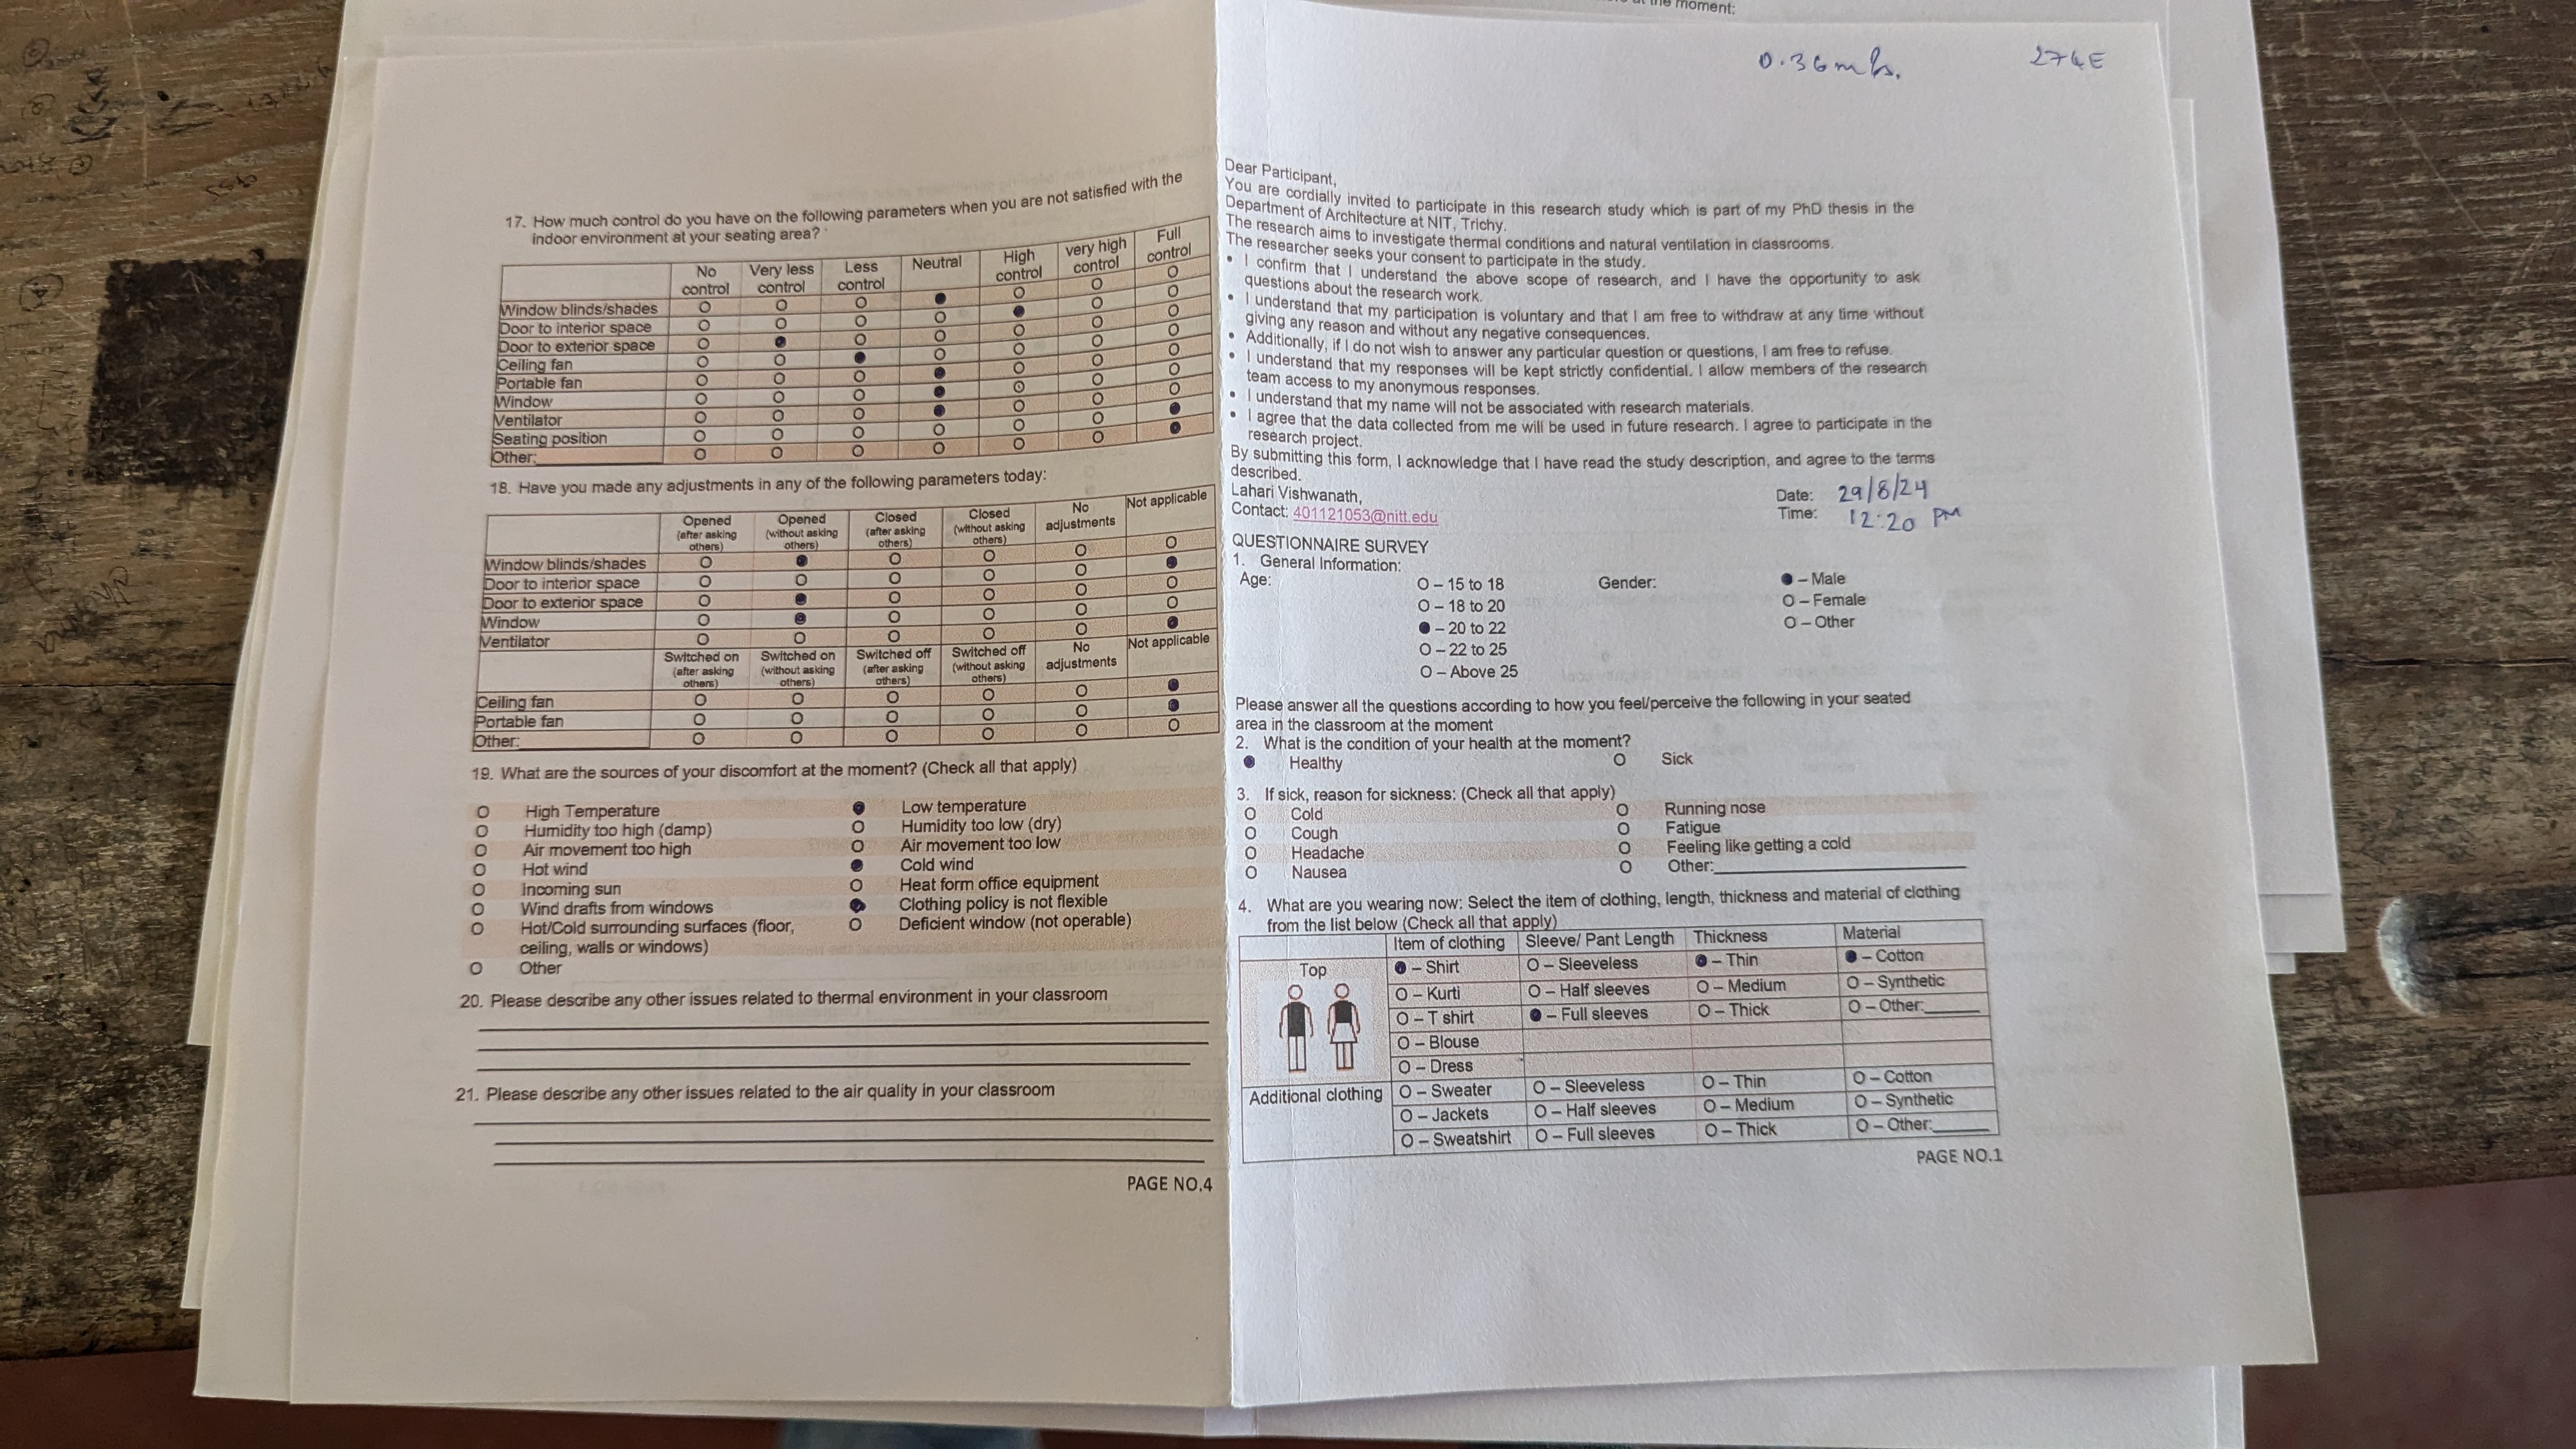 at the moment:
0.36m/s.
274E
17. How much control do you have on the following parameters when you are not satisfied with the
indoor environment at your seating area?
No control Very less control Less control Neutral High control very high control Full control
Window blinds/shades O O O ● O O O
Door to interior space O O O O ● O O
Door to exterior space O ● O O O O O
Ceiling fan O O ● O O O O
Portable fan O O O ● O O O
Window O O O ● O O O
Ventilator O O O ● O O O
Seating position O O O O O O ●
Other: O O O O O O ●
18. Have you made any adjustments in any of the following parameters today:
Opened (after asking others) Opened (without asking others) Closed (after asking others) Closed (without asking others) No adjustments Not applicable
Window blinds/shades O ● O O O O
Door to interior space O O O O O ●
Door to exterior space O ● O O O O
Window O ● O O O O
Ventilator O O O O O ●
Switched on (after asking others) Switched on (without asking others) Switched off (after asking others) Switched off (without asking others) No adjustments Not applicable
Ceiling fan O O O O O ●
Portable fan O O O O O ●
Other: O O O O O O
19. What are the sources of your discomfort at the moment? (Check all that apply)
O High Temperature ● Low temperature
O Humidity too high (damp) O Humidity too low (dry)
O Air movement too high O Air movement too low
O Hot wind ● Cold wind
O Incoming sun O Heat form office equipment
O Wind drafts from windows ● Clothing policy is not flexible
O Hot/Cold surrounding surfaces (floor, O Deficient window (not operable)
ceiling, walls or windows)
O Other
20. Please describe any other issues related to thermal environment in your classroom
21. Please describe any other issues related to the air quality in your classroom
PAGE NO.4
Dear Participant,
You are cordially invited to participate in this research study which is part of my PhD thesis in the
Department of Architecture at NIT, Trichy.
The research aims to investigate thermal conditions and natural ventilation in classrooms.
The researcher seeks your consent to participate in the study.
• I confirm that I understand the above scope of research, and I have the opportunity to ask
questions about the research work.
• I understand that my participation is voluntary and that I am free to withdraw at any time without
giving any reason and without any negative consequences.
• Additionally, if I do not wish to answer any particular question or questions, I am free to refuse.
• I understand that my responses will be kept strictly confidential. I allow members of the research
team access to my anonymous responses.
• I understand that my name will not be associated with research materials.
• I agree that the data collected from me will be used in future research. I agree to participate in the
research project.
By submitting this form, I acknowledge that I have read the study description, and agree to the terms
described.
Lahari Vishwanath,
Contact: 401121053@nitt.edu
Date: 29/8/24
Time: 12:20 PM
QUESTIONNAIRE SURVEY
1. General Information:
Age: O – 15 to 18 Gender: ● – Male
O – 18 to 20 O – Female
● – 20 to 22 O – Other
O – 22 to 25
O – Above 25
Please answer all the questions according to how you feel/perceive the following in your seated
area in the classroom at the moment
2. What is the condition of your health at the moment?
● Healthy O Sick
3. If sick, reason for sickness: (Check all that apply)
O Cold O Running nose
O Cough O Fatigue
O Headache O Feeling like getting a cold
O Nausea O Other:
4. What are you wearing now: Select the item of clothing, length, thickness and material of clothing
from the list below (Check all that apply)
Item of clothing Sleeve/ Pant Length Thickness Material
Top ● – Shirt O – Sleeveless ● – Thin ● – Cotton
O – Kurti O – Half sleeves O – Medium O – Synthetic
O – T shirt ● – Full sleeves O – Thick O – Other:
O – Blouse
O – Dress
Additional clothing O – Sweater O – Sleeveless O – Thin O – Cotton
O – Jackets O – Half sleeves O – Medium O – Synthetic
O – Sweatshirt O – Full sleeves O – Thick O – Other:
PAGE NO.1